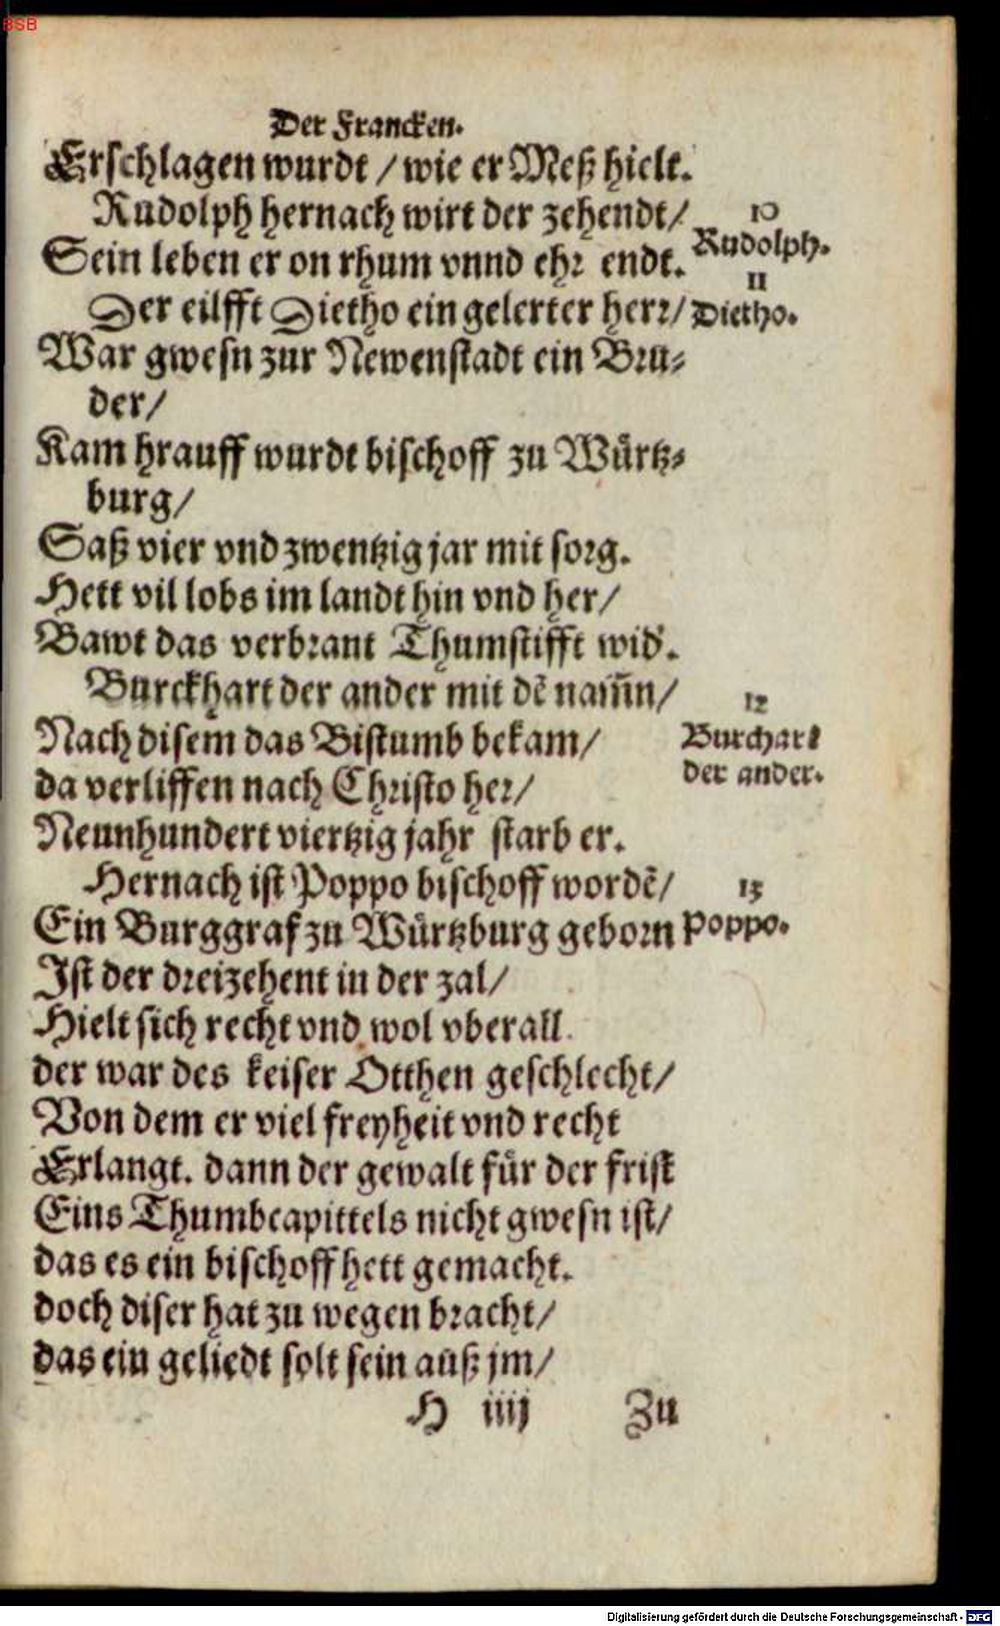 BSB
Der Francken.
Erschlagen wurdt / wie er Meß hielt.
Rudolph hernach wirt der zehendt/
10
Rudolph.
Sein leben er on rhum vnnd ehr endt.
11
Der eilfft Dietho ein gelerter herr/
Dietho.
War gwesn zur Newenstadt ein Bru⸗
der/
Kam hrauff wurdt bischoff zu Wuͤrtz⸗
burg/
Saß vier vnd zwentzig jar mit sorg.
Hett vil lobs im landt hin vnd her/
Bawt das verbrant Thumstifft wid'.
Burckhart der ander mit dē nam̄n/
12
Nach disem das Bistumb bekam/
Burchart
der ander.
da verliffen nach Christo her/
Neunhundert viertzig jahr starb er.
Hernach ist Poppo bischoff wordē/
13
Ein Burggraf zu Wuͤrtzburg geborn
Poppo.
Ist der dreizehent in der zal/
Hielt sich recht vnd wol vberall.
der war des keiser Otthen geschlecht/
Von dem er viel freyheit vnd recht
Erlangt. dann der gewalt fuͤr der frist
Eins Thumbcapittels nicht gwesn ist/
das es ein bischoff hett gemacht.
doch diser hat zu wegen bracht/
das ein geliedt solt sein auß jm/
H iiij Zu
Digitalisierung gefördert durch die Deutsche Forschungsgemeinschaft - DFG